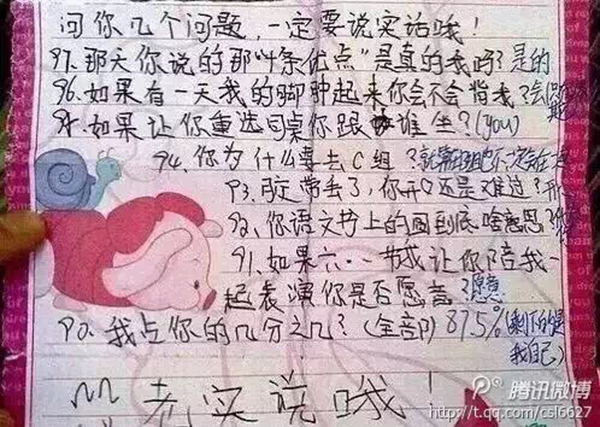 问你几个问题,一定要说实话哦!
97.那天你说的那"4条优点"是真的我吗?是的
96.如果有一天我的脚肿起来你会不会背我?会
95.如果让你重选同桌你跟谁坐?(you)
94.你为什么要去C组?
93.胶带丢了,你开心还是难过?
92.你语文书上的图到底啥意思?
91.如果六·一节我让你陪我一
起表演你是否愿意?愿意
90.我占你的几分之几?(全部)87.5%(剩下的是
我自己)
老实说哦!
腾讯微博
http://t.qq.com/csl6627